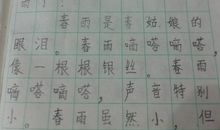 雨了！
春雨是春姑娘的
眼泪。春雨嘀嗒嘀嗒，
像一根根银丝。春雨
嘀嗒嘀嗒，声音特别
小。春雨虽然小，但